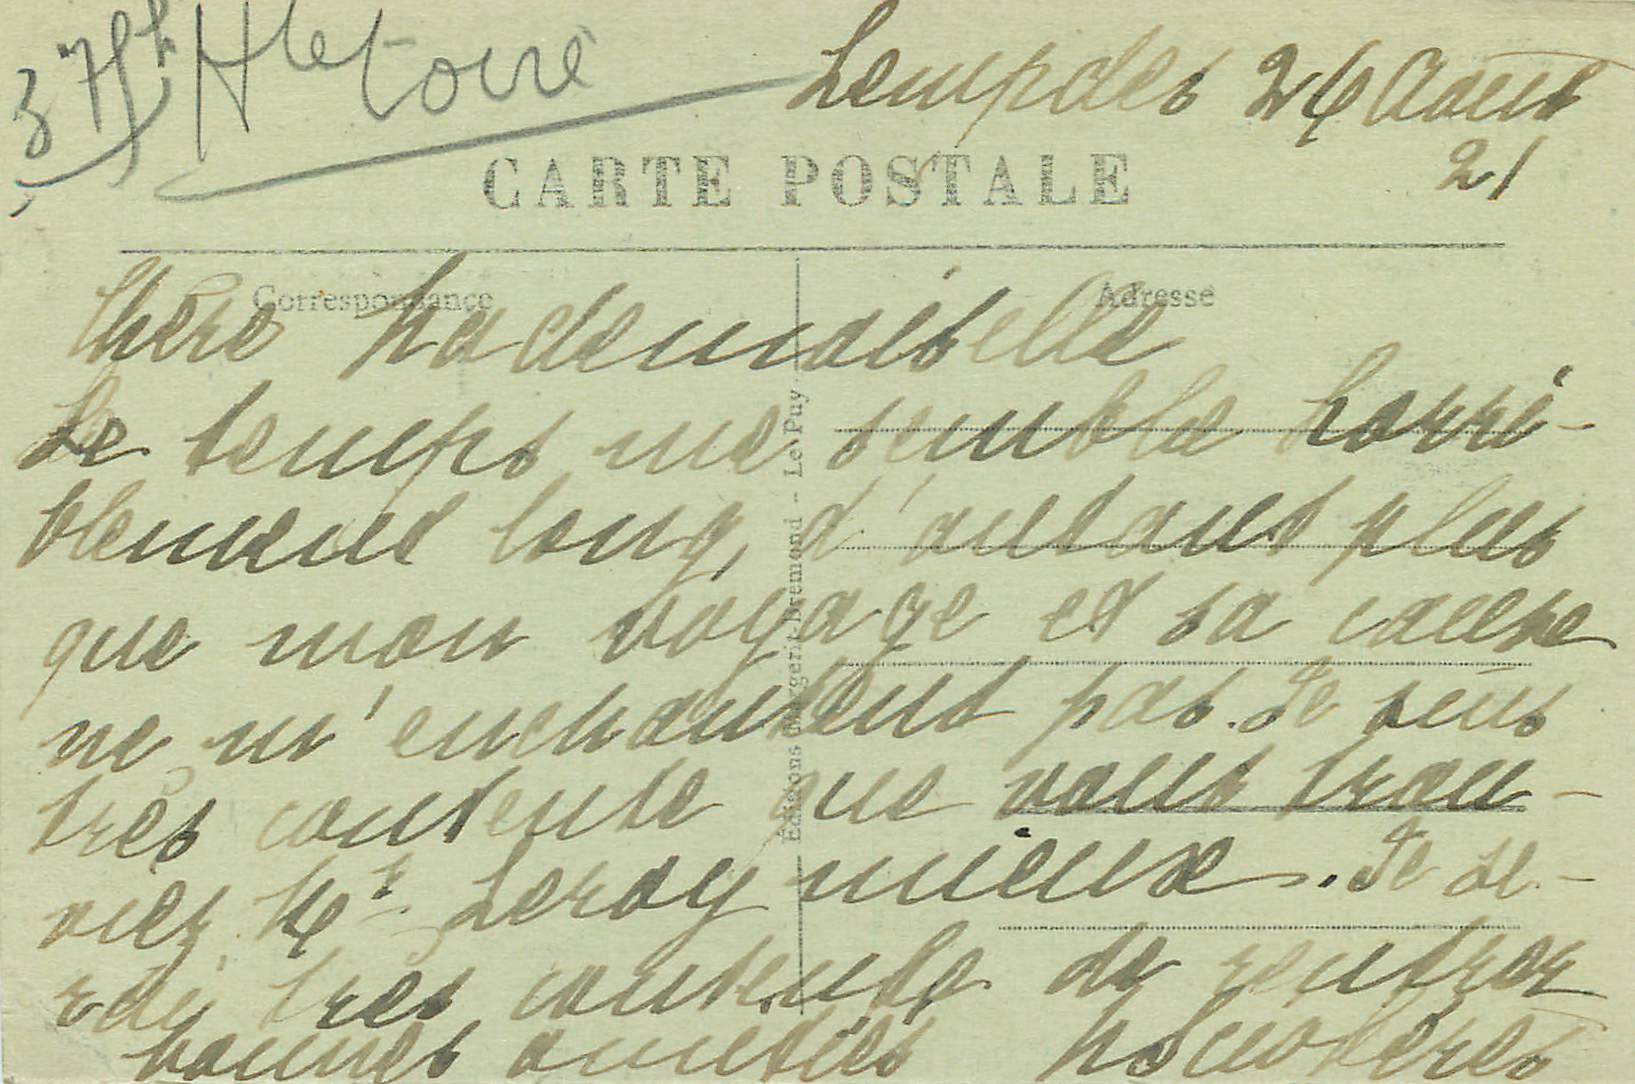 37 Hte Loire
Lempdes 26 Août
21
CARTE POSTALE
Correspondance
Adresse
Chère Mademoiselle
Le temps me semble horri-
blement long, d'autant plus
que mon voyage et sa cause
ne m'enchantent pas. Je suis
très contente que vous trou-
viez Mr. Leroy mieux. Je se-
rai très contente de rentrer
bonnes amitiés
Éditions Margerit-Brémond - Le Puy